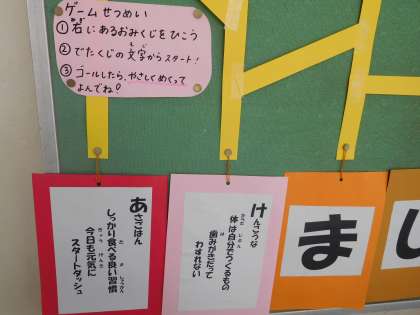 ゲームせつめい
①右にあるおみくじをひこう
②でたくじの文字からスタート!
③ゴールしたら、やさしくめくって
よんでね!
あさごはん
しっかり食べる良い習慣
今日も元気に
スタートダッシュ
けんこうな
体は自分でつくるもの
歯みがきだって
わすれない
ま